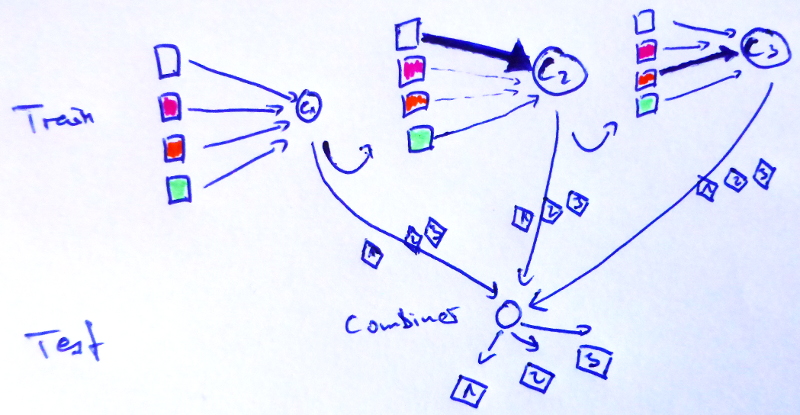 Train
C1
C2
C3
1 2 3
1 2 3
1 2 3
Combiner
Test
1 2 3